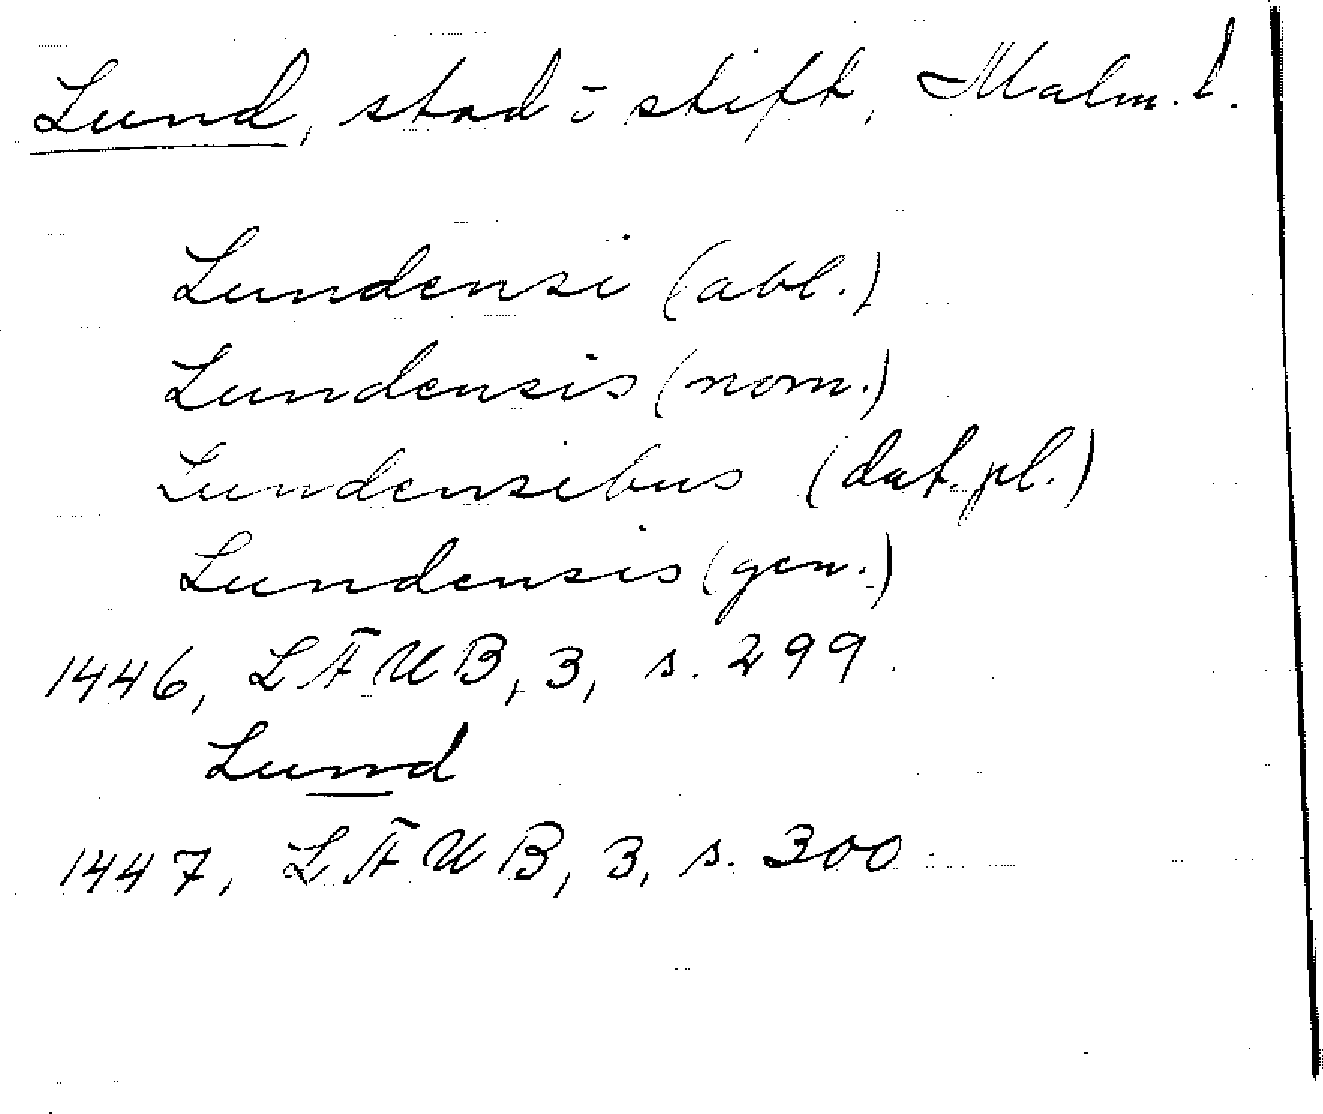 Lund, stad o stift, Malm. l.
Lundensi (abl.)
Lundensis (nom.)
Lundensibus (dat. pl.)
Lundensis (gen.)
1446, LÄUB, 3, s. 299.
Lund
1447, LÄUB, 3, s. 300.